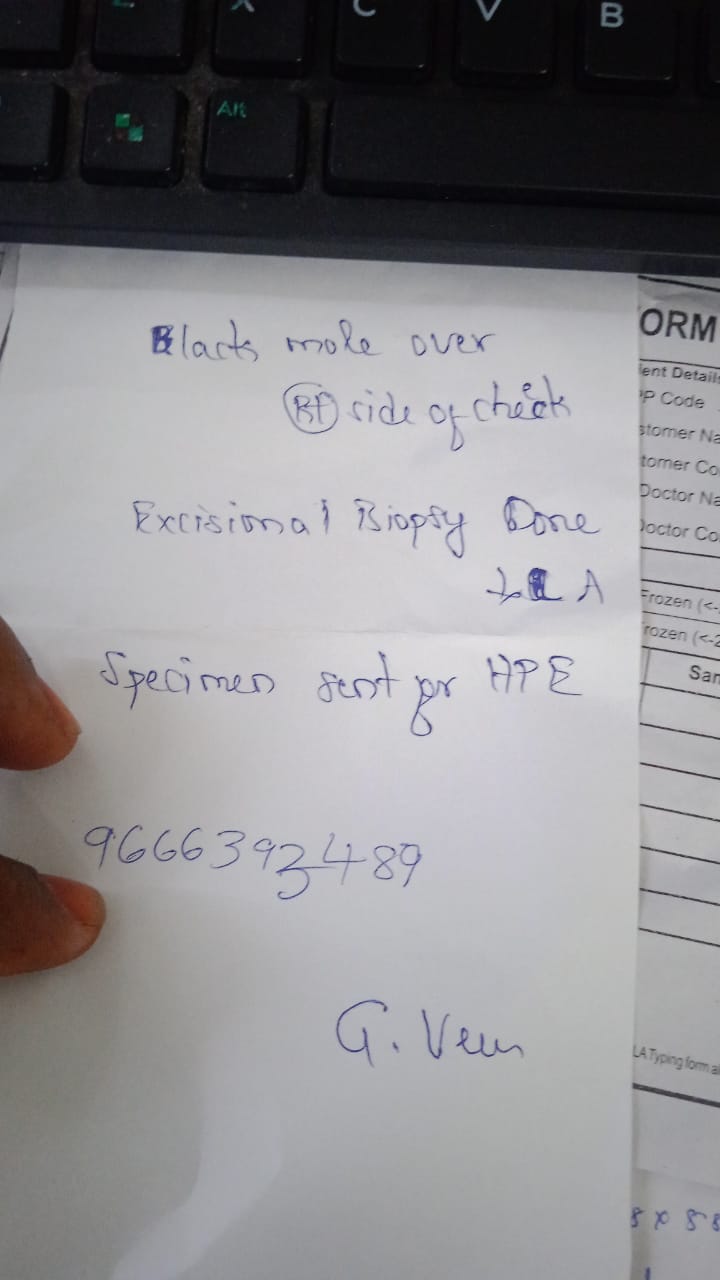 X
C
V
B
Alt
Black mole over
Rt side of cheek
Excisional Biopsy Done
LA
Specimen sent for HPE
9666393489
G. Ven
ORM
ient Details
PP Code
stomer Na
tomer Co
Doctor Na
Doctor Co
Frozen (<-
rozen (<-2
San
LA Typing form a